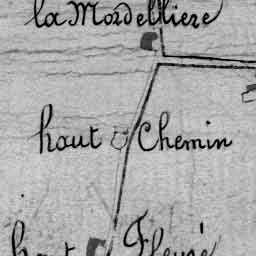 la Mordelliere
haut Chemin
haut Fleuré